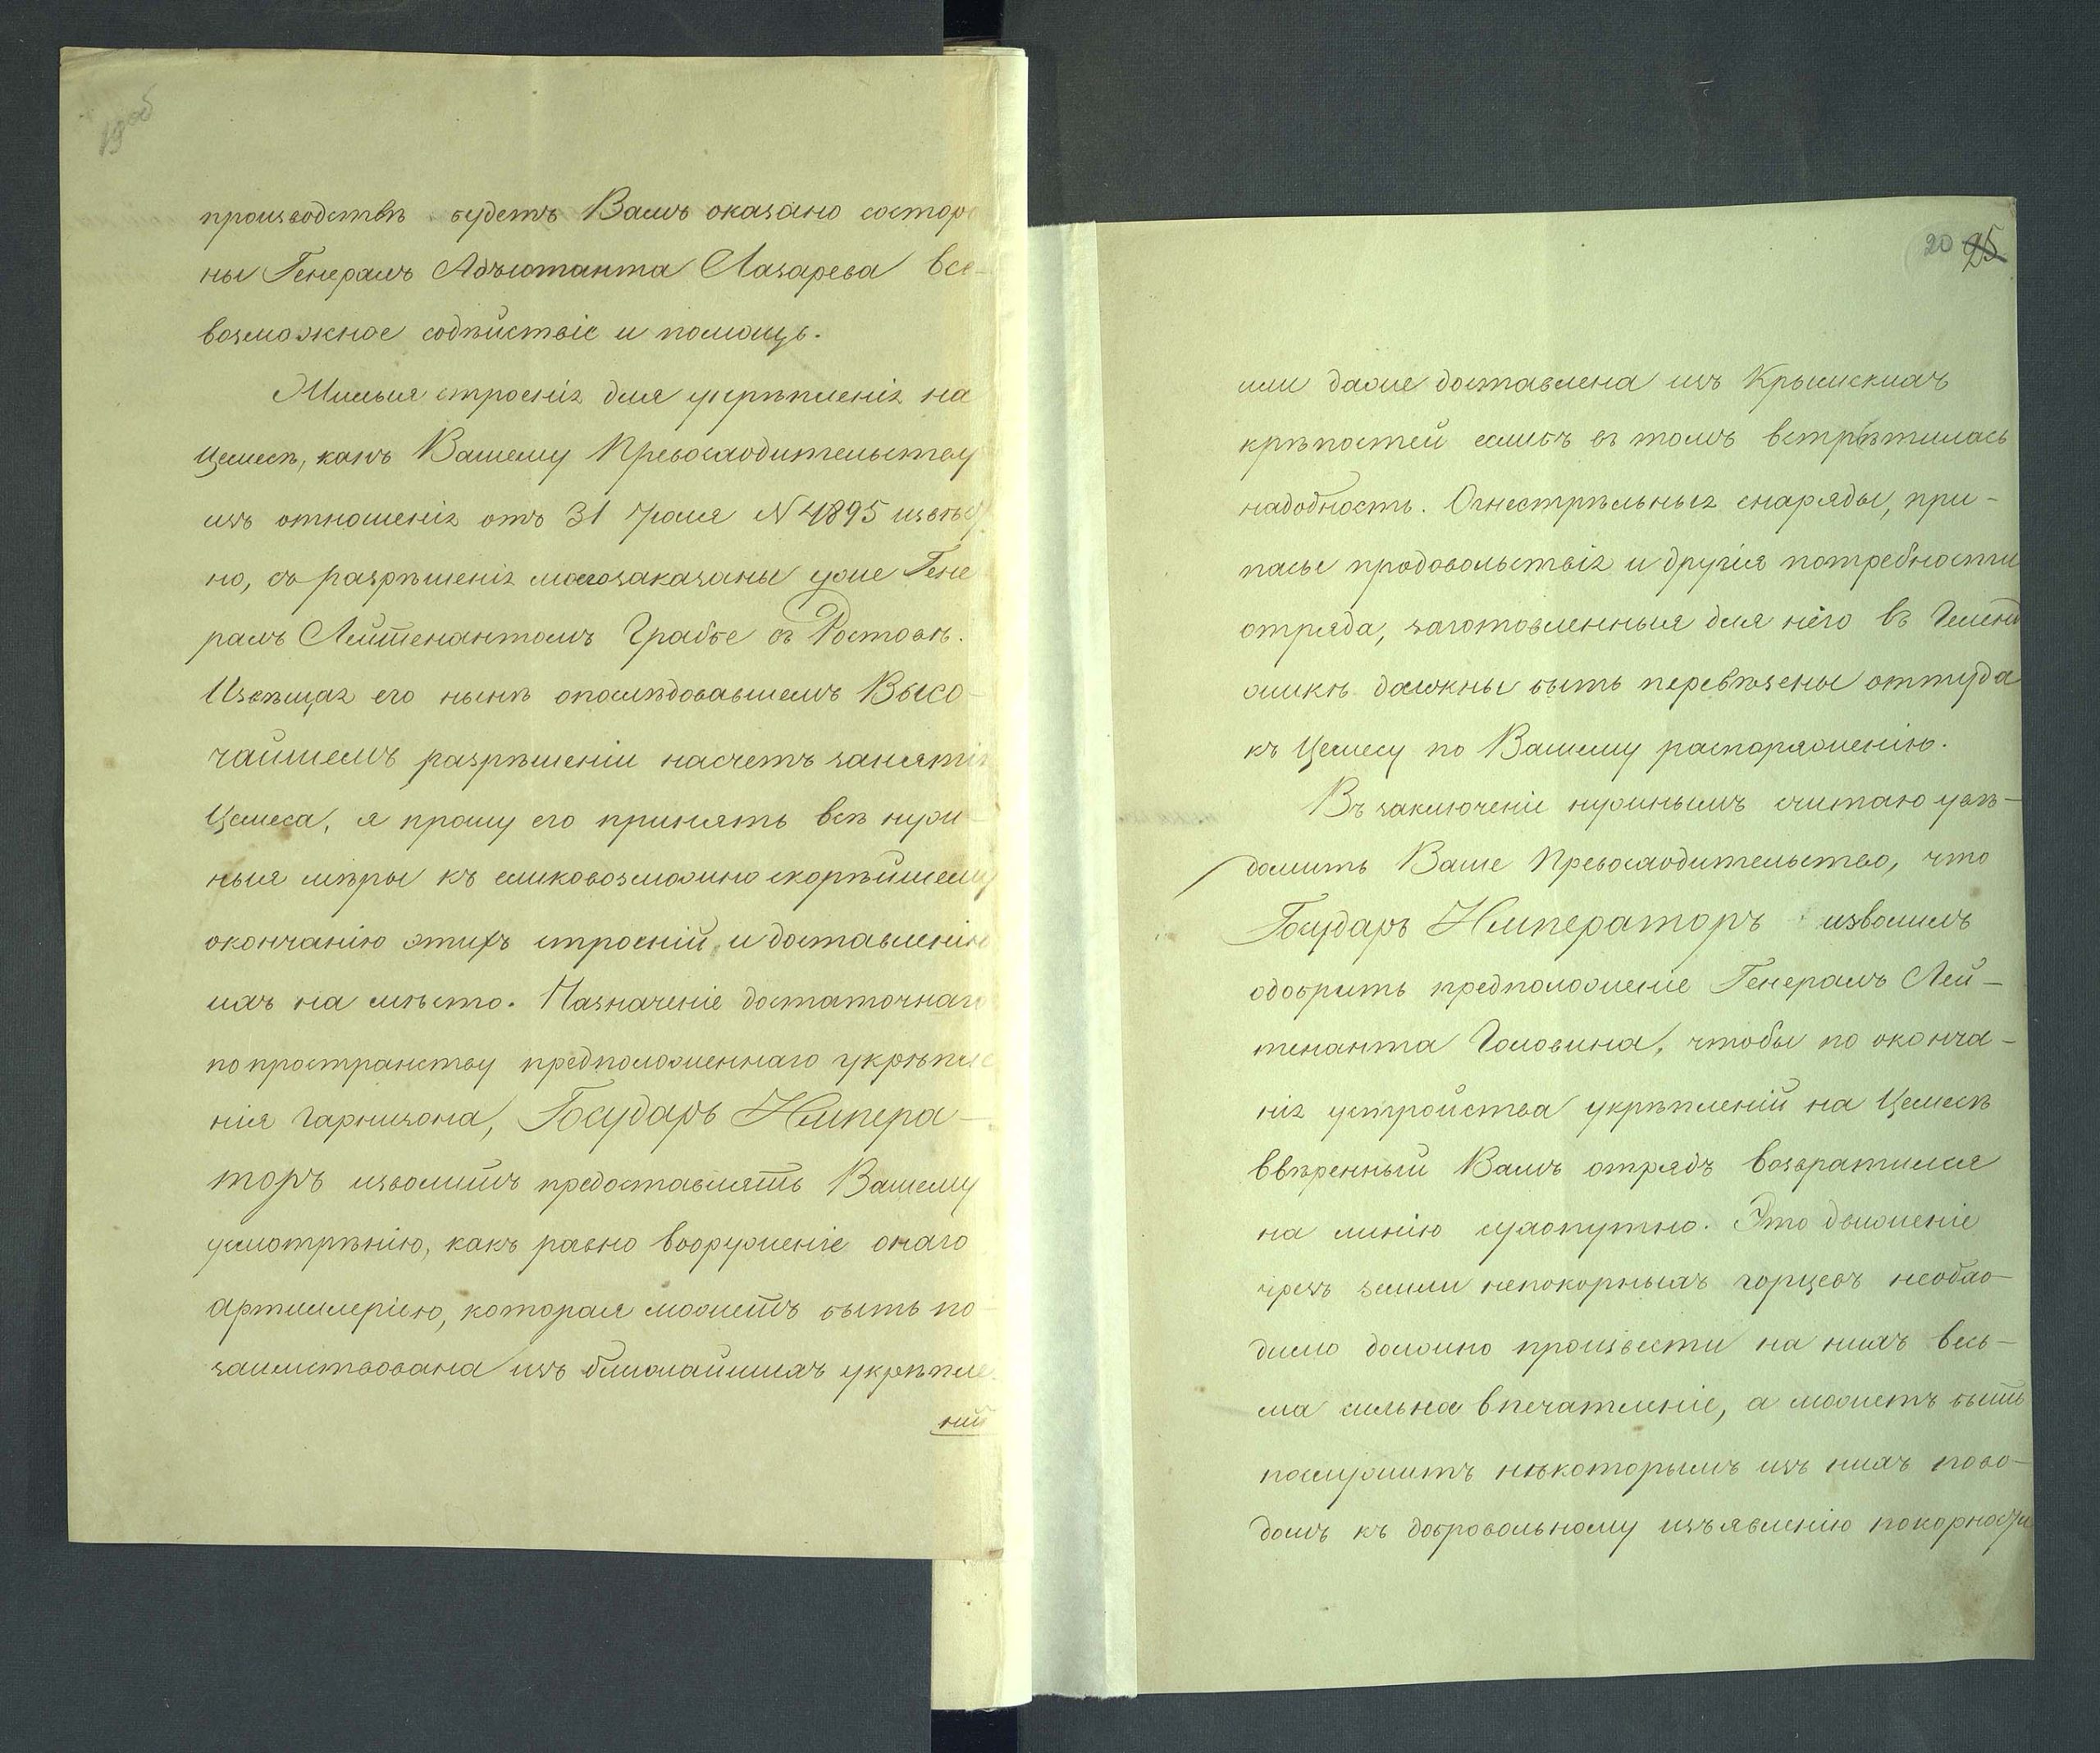 19 об
производствѣ будетъ Вамъ оказано состоро
ны Генералъ Адъютанта Лазарева все-
возможное содѣйствіе и помощь.
Жилыя строенія для укрѣпленія на
Цемесѣ, какъ Вашему Превосходительству
изъ отношенія отъ 31 Мая N 4895 извѣс
но, съ разрѣшенія моего заказаны уже Гене
ралъ Лейтенантомъ Граббе въ Ростовѣ.
Извѣщая его нынѣ опослѣдовавшемъ Высо-
чайшемъ разрѣшеніи насчетъ занятія
Цемеса, я прошу его принять всѣ нуж-
ныя мѣры къ сликовозможно скорѣйшему
окончанію этихъ строеній и доставленію
ихъ на мѣсто. Назначеніе достаточнаго
по пространству предположеннаго укрѣпле
нія гарнизона, Государь Импера-
торъ изволитъ предоставлять Вашему
усмотрѣнію, какъ равно вооруженіе онаго
артиллеріею, которая можетъ быть по-
заимствована изъ ближайшихъ укрѣпле-
ній
20 25
или даже доставлена изъ Крымскихъ
крѣпостей еслибъ въ томъ встрѣтилась
надобность. Огнестрѣльныя снаряды, при-
пасы продовольствія и другія потребности
отряда, заготовленныя для него въ Геленд
жикѣ должны быть перевѣзены оттуда
къ Цемесу по Вашему распоряженію.
Въ заключеніе нужнымъ считаю увѣ-
домить Ваше Превосходительство, что
Государь Императоръ изволилъ
одобрить предположеніе Генералъ Лей-
тенанта Головина, чтобы по оконча-
нія устройства укрѣпленій на Цемесѣ
ввѣренный Вамъ отрядъ возвратился
на линію сухопутно. Это движеніе
чрезъ земли непокорныхъ горцевъ необхо-
димо должно произвести на нихъ весь-
ма сильна впечатленіе, а можетъ быть
послужитъ нѣкоторымъ изъ нихъ пово-
домъ къ добровольному изъявленію покорности